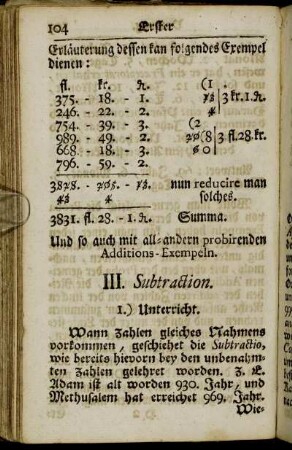 104 Erster
Erläuterung dessen kan folgendes Exempel
dienen:
fl. kr. ₰.
375. - 18. - 1.
246. - 22. - 2.
754. - 39. - 3.
989. - 49. - 2.
668. - 18. - 3.
796. - 59. - 2.
(1
3 kr. 1. ₰.
(2
(8 3 fl. 28. kr.
3828. - 205. - 13. nun reducire man
solches.
3831. fl. 28. - 1. ₰. Summa.
Und so auch mit all-andern probirenden
Additions-Exempeln.
III. Subtraction.
1.) Unterricht.
Wann Zahlen gleiches Nahmens
vorkommen, geschiehet die Subtractio,
wie bereits hievorn bey den unbenahm-
ten Zahlen gelehret worden. z. E.
Adam ist alt worden 930. Jahr, und
Methusalem hat erreichet 969. Jahr.
Wie-